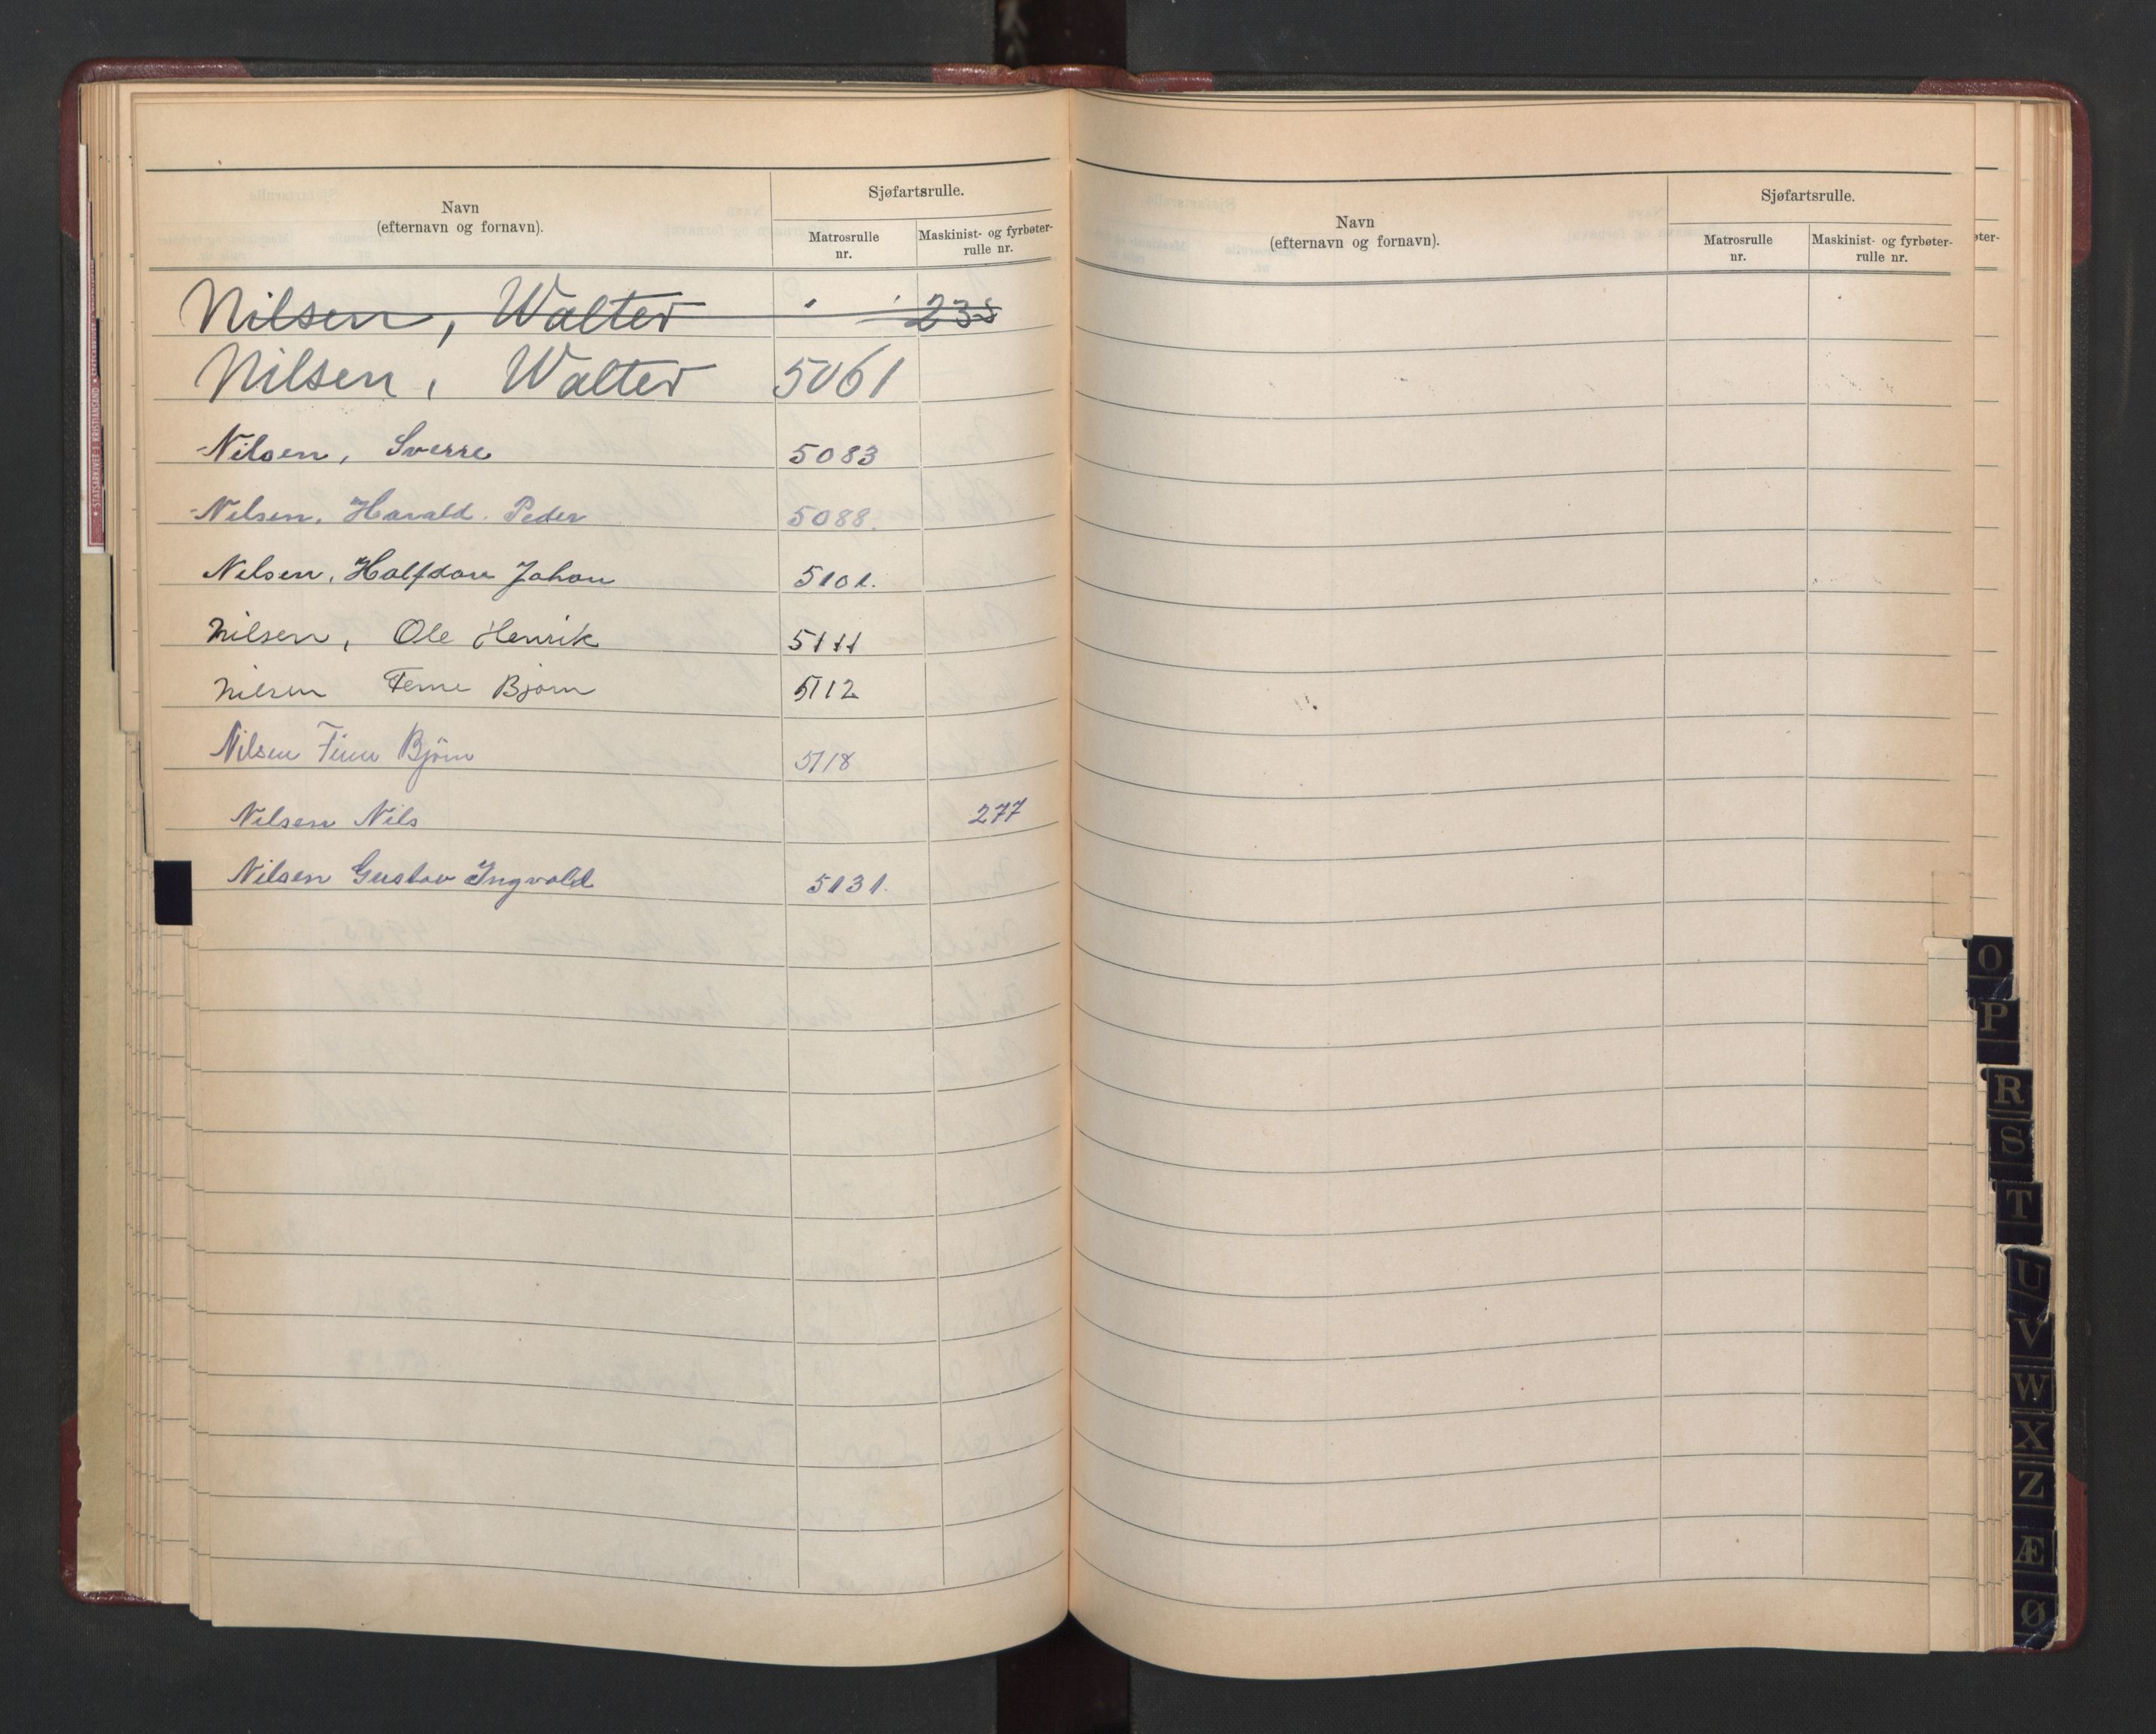 Navn
(efternavn og fornavn).
Sjøfartsrulle.
Matrosrulle
nr.
Maskinist- og fyrbøter-
rulle nr.
Nilsen, Walter 235
Nilsen, Walter 5061
Nilsen, Sverre 5083
Nilsen, Harald Peder 5088.
Nilsen, Halfdan Johan 5101.
Nilsen, Ole Henrik 5111
Nilsen Bjørn 5112
Nilsen Finn Bjørn 5118
Nilsen Nils 277
Nilsen Gustav Ingvald 5131.
Navn
(efternavn og fornavn).
Sjøfartsrulle.
Matrosrulle
nr.
Maskinist- og fyrbøter-
rulle nr.
øter-
O
P
R
S
T
U
V
W
X
Z
Æ
Ø